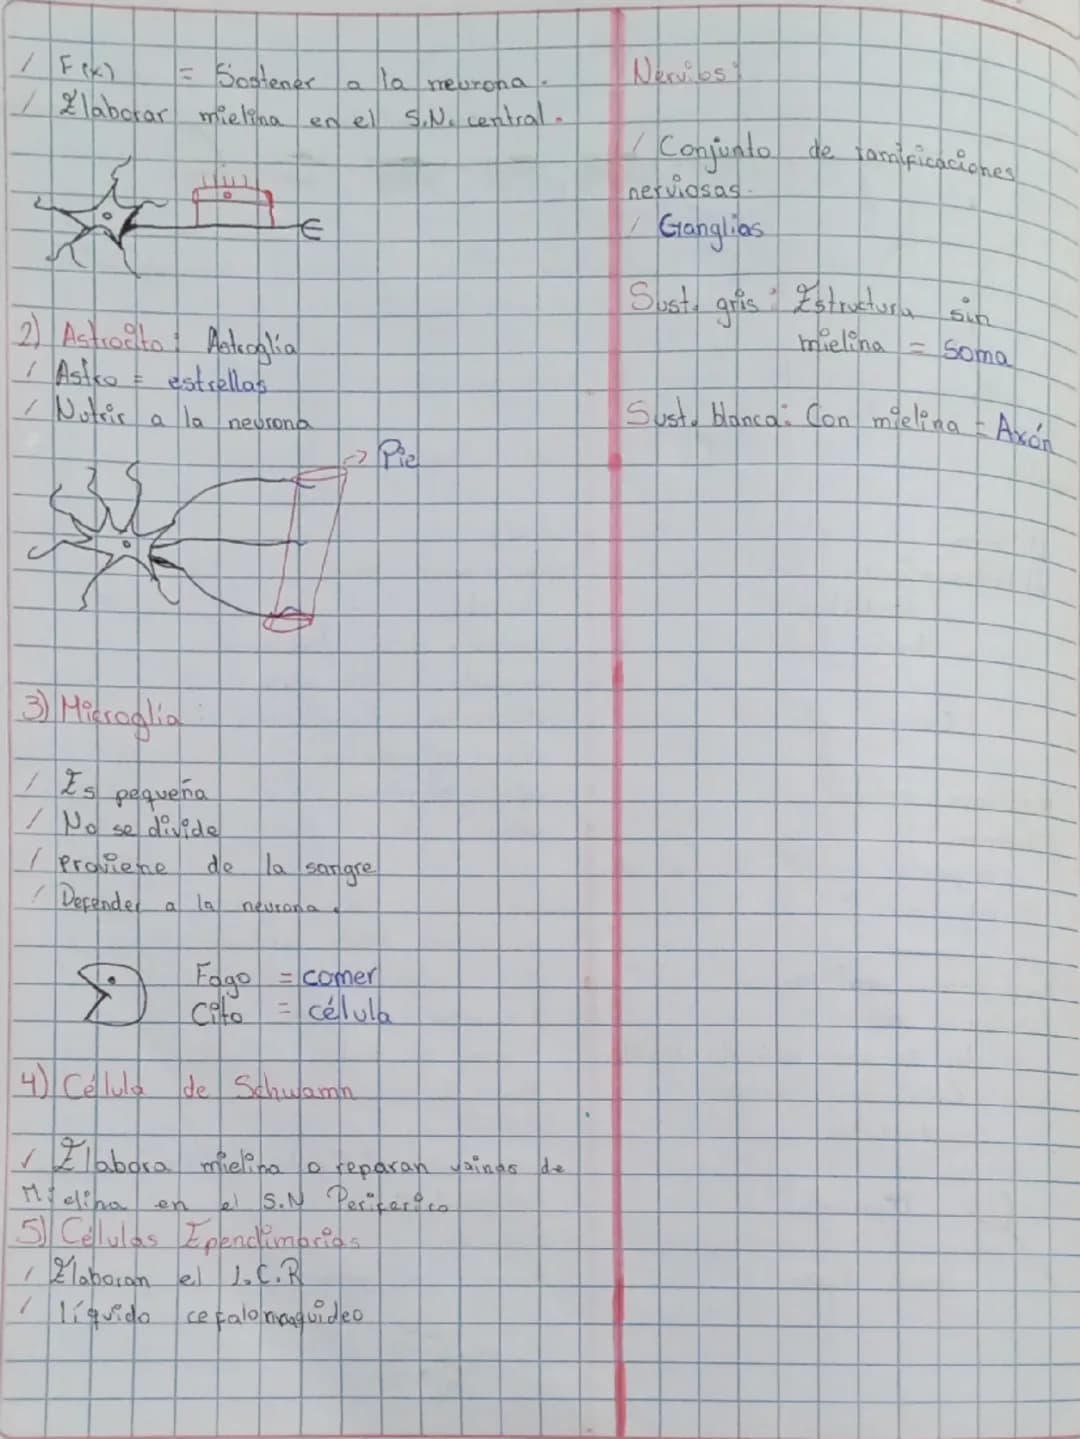 / F(x) = Sostener a la neurona.
/ Elaborar mielina en el S.N. central.
2) Astrocito: Astroglía
/ Astro = estrellas
/ Nutrir a la neurona
→ Pie
3) Microglia:
/ Es pequeña
/ No se divide
/ Proviene de la sangre
/ Defender a la neurona.
Fago = comer
Cito = célula
4) Célula de Schwamn
/ Elabora mielina o reparan vainas de
Mielina en el S.N Periferico
5) Células Ependimarias
/ Elaboran el L.C.R
/ líquido cefalo
Nervios:
/ Conjunto de ramificaciones
nerviosas.
/ Ganglias
Sust. gris: Estructura sin
mielina = Soma
Sust. blanca: Con mielina = Axón